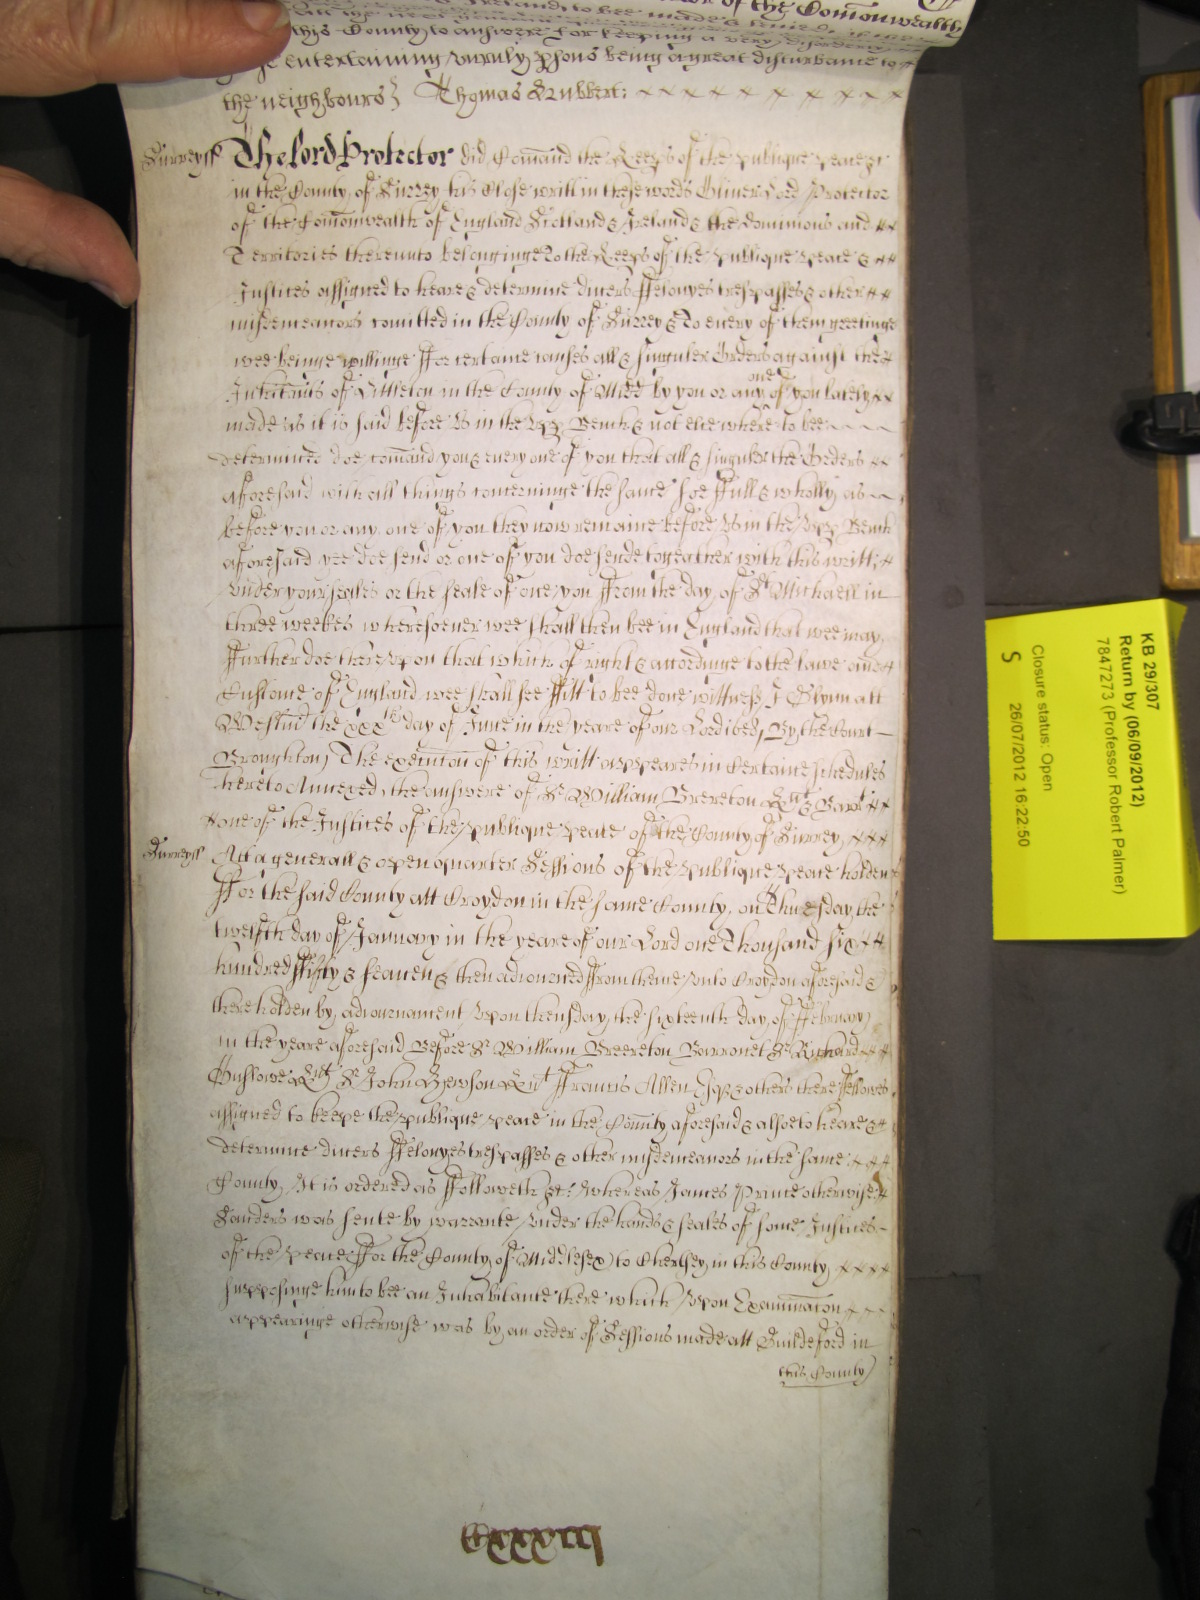 of the Com̄onwealth
Ireland to bee made &
att the next generall
this County to answere for keeping a very disorderly
entertaining vnruly p̱sons being a great disturbance to
the neighbours Thomas Grubbert:
Surrey ss The Lord Protector did Com̄and the Keeps of the publique peace &c
in the County of Surrey his Close writt in these words Oliver Lord Protector
of the Com̄onwealth of England Scotland & Ireland & the dominions and
Territories thereunto belonginge To the Keeps of the publique peace &
Justices assigned to heare & determine divers ffelonyes trespasses & other
misdemeanors com̄itted in the County of Surrey & to every of them greetinge
wee beinge willinge ffor certaine causes all & singuler Orders against the
Inh̄itants of Littleton in the County of Midd by you or any one of you lately
made as it is said before Us in the Upp Bench & not else where to bee
determined doe com̄and you & every one of you that all & singuler the Orders
aforesaid with all things concerninge the same soe ffull & wholly as
before you or any one of you they now remaine before Us in the Upp Bench
aforesaid yee doe send or one of you doe sende togeather with this writt
vnder your seales or the seale of one you ffrom the day of St Michaell in
three weekes wheresoever wee shall then bee in England that wee may
ffurther doe thereupon that which of right & accordinge to the lawe and
Custome of England wee shall see ffitt to bee done wittness J Glynn att
Westm̄ the xxxth day of June in the yeare of our Lord 1657 By the Court
Broughton The execuc̄on of this writt appeares in Certaine schedules
hereto Annexed the answere of Sr William Brereton Knt & Baront
one of the Justices of the publique peace of the County of Surrey
Surrey ss Att a generall & open quarter Sessions of the publique peace holden
ffor the said County att Croydon in the same County on Thuesday the
twelfth day of January in the yeare of our Lord one Thousand six
hundred ffifty & seaven & then adiourned ffrom thence vnto Croydon aforesaid &
there holden by adiournament vpon thuesday the sixteenth day of ffebruary
in the yeare aforesaid Before Sr William Breereton Barronet Sr Richard
Onslowe Knt Sr John Hewson Knt ffrancis Allen Esqr & others there ffellowes
assigned to keepe the publique peace in the County aforesaid & alsoe to heare &
determine divers ffelonyes trespasses & other misdemeanors in the same
County It is ordered as ffolloweth zt: whereas James Prince otherwise
Sanders was sente by warrante vnder the hands & seales of some Justices
of the peace ffor the County of Middlesex to Chertsey in this County
supposinge him to bee an Inhabitante there which vpon Examinac̄on
appearinge otherwise was by an order of Sessions made att Guildeford in
this County
Cxxxiij
KB 29/307
Return by (06/09/2012)
7847273 (Professor Robert Palmer)
Closure status: Open
S 26/07/2012 16:22:50